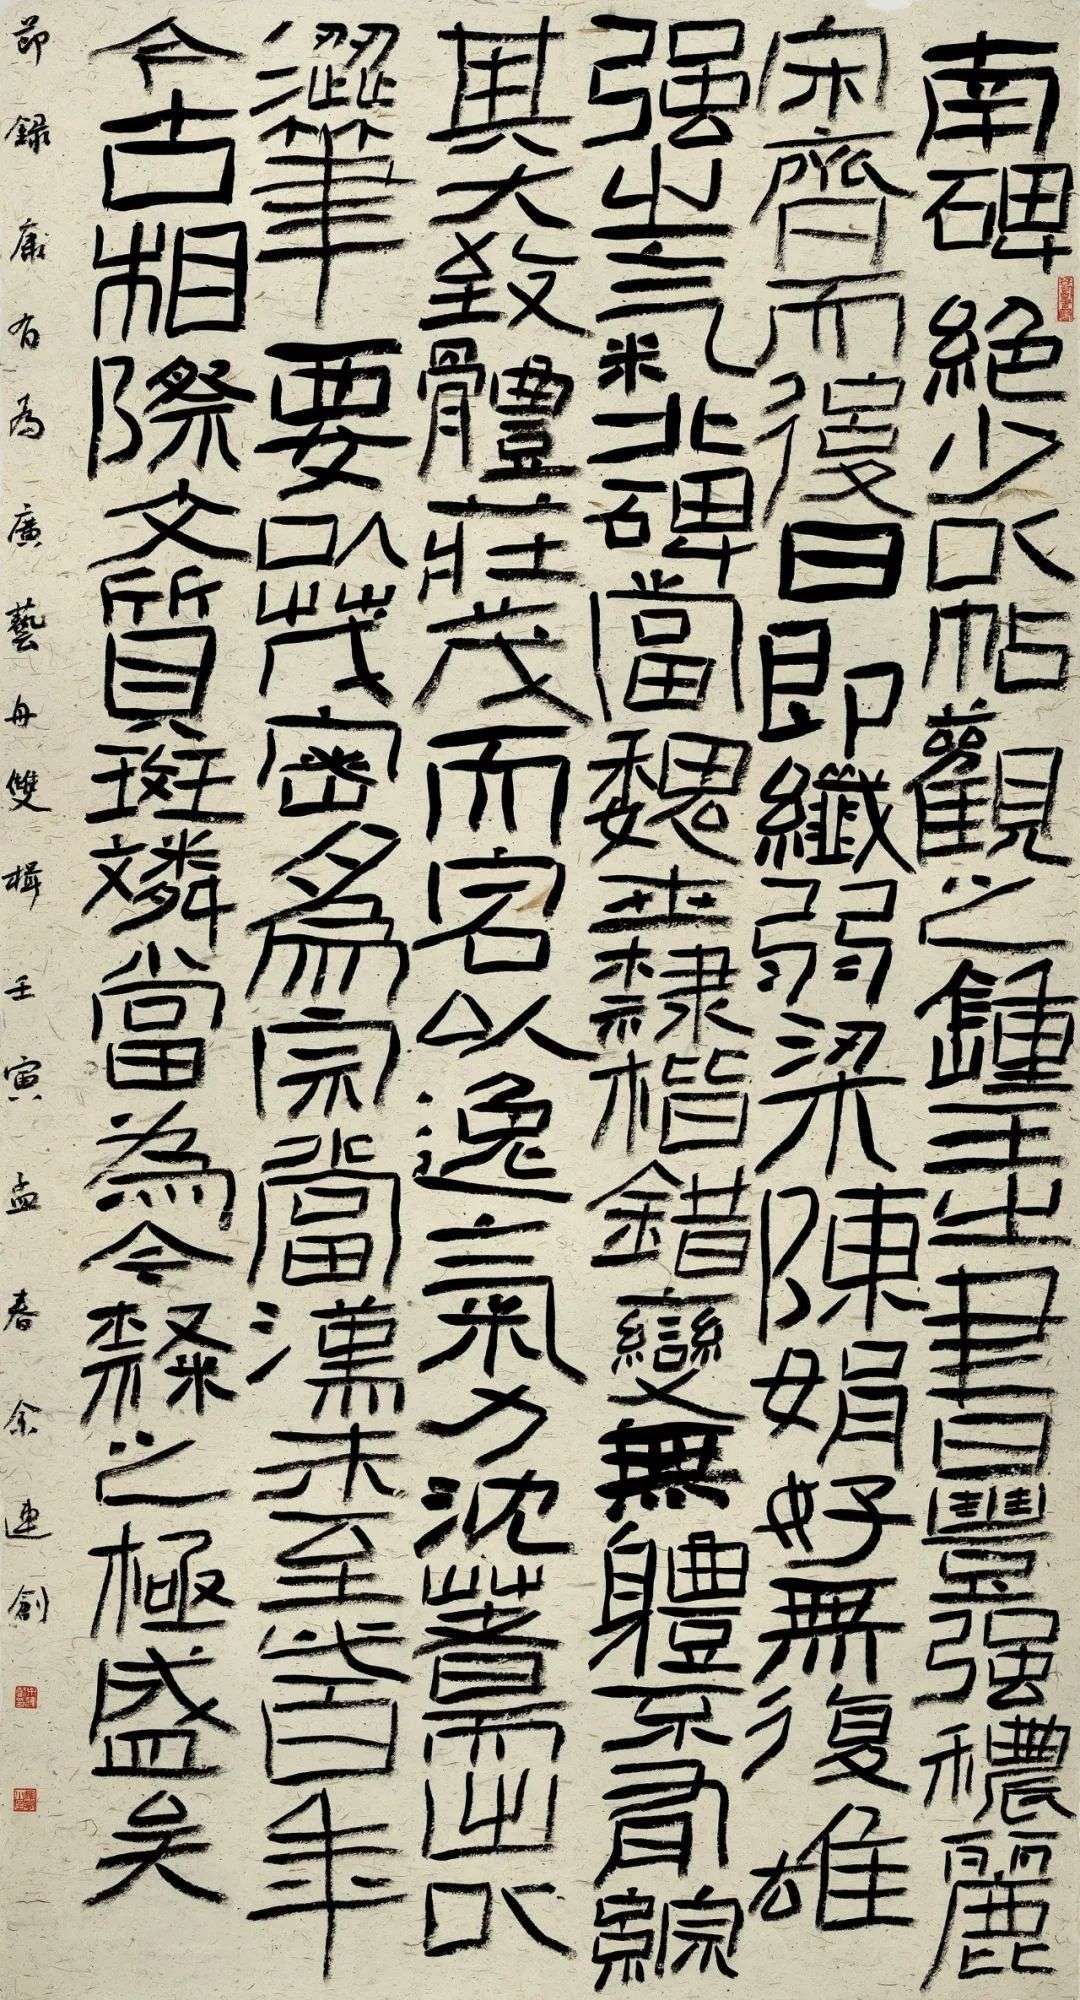 南碑絕少以帖觀之鍾王之書自豐强穠麗
宋齊而後日即纖弱梁陳娟好無復雄
强之氣北碑當魏世隸楷錯變無體不有綜
其大致體莊茂而宕以逸氣力沈著而出以
澀筆要以茂密為宗當漢末至此百年
今古相際文質斑璘當為今隸之極盛矣
節錄康有為廣藝舟雙楫壬寅孟春余連創